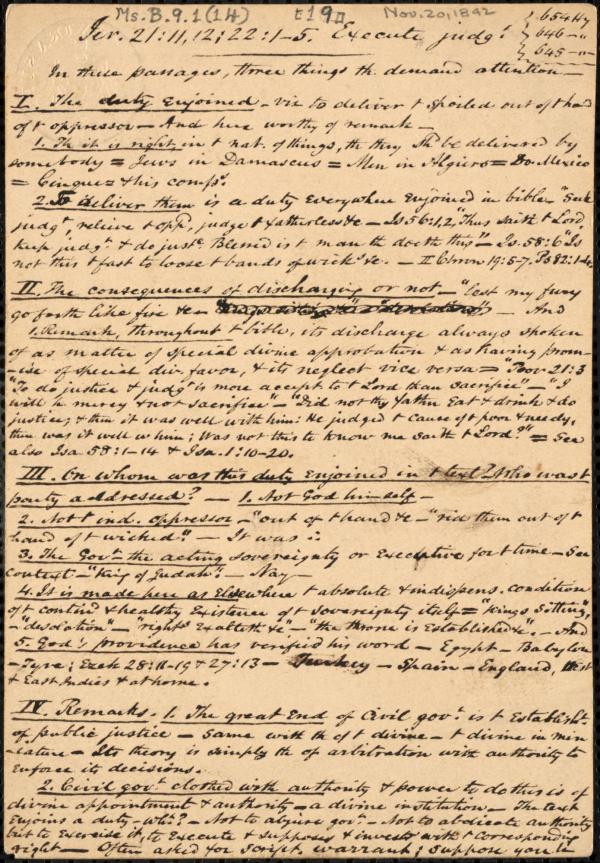 Ms. B. 9.1 (14) [19] Nov. 20, 1842
Jer. 21:11, 12; 22:1-5. Execute judgt. 654 Hy
646 - "
645 - "
In these passages, three things th. demand attention —
I. The duty enjoined — viz to deliver t spoiled out of t hand
of t oppressor — And here worthy of remark —
1. Th it is right, in t nat. of things, th they shd be delivered by
somebody = Jews in Damascus = Men in Algiers = Do. Mexico
= Cinquez & his comps.
2. To deliver them is a duty everywhere enjoined in bible "Seek
judgt, relieve t opp, judge t fatherless &c — Is 56:1,2, "Thus saith t Lord,
keep judgt. & do justc. Blessed is t man th doeth this" — Is. 58:6 "Is
not this t fast to loose t bands of wicks &c. — II Chron 19:5-7. Ps 82:1-4.
II. The consequences of discharging or not — "Lest my fury
go forth like fire &c — And
1. Remark, throughout t bible, its discharge always spoken
of as matter of special divine approbation & as having prom-
-ise of special div. favor, & its neglect vice versa = "Prov 21:3
"To do justice & judgt is more accept. to t Lord than sacrifice" — "I
will h mercy & not sacrifice" — "Did not thy father eat & drink & do
justice, & then it was well with him: He judged t cause of t poor & needy,
then was it well w him; Was not this to know me saith t Lord?" = See
also Isa. 58:1-14 & Isa. 1:10-20.
III. On whom was this duty enjoined in t text? Who was t
party addressed? — 1. Not God himself —
2. Not t ind. oppressor — "out of t hand &c — "rid them out of t
hand of t wicked" — It was ∴
3. The Govt. the acting sovereignty or Executive for t time — See
context — "King of Judah". — Nay —
4. It is made here as Elsewhere t absolute & indispens. condition
of t contind & healthy existence of t sovereignty itself = "Kings sitting",
— "desolation" — "rights. Exalteth &c" — "the throne is established &c". — And
5. God's providence has verified his word — Egypt — Babylon
— Tyre; Ezek 28:11-19 & 27:13 — Turkey — Spain — England, West
& East Indies & at home.
IV. Remarks. 1. The great End of Civil govt. is t Establisht.
of public justice — Same with th of t divine — t divine in min
-iature — Its theory is simply th of arbitration with authority to
enforce its decisions.
2. Civil govt. clothed with authority & power to do this is of
divine appointment & authority — a divine institution — The text
enjoins a duty — wh.? — Not to abjure govt. — Not to abdicate authority
but to exercise it, to execute & supposes & invests with t corresponding
right — Often asked for script. warrant; suppose you h